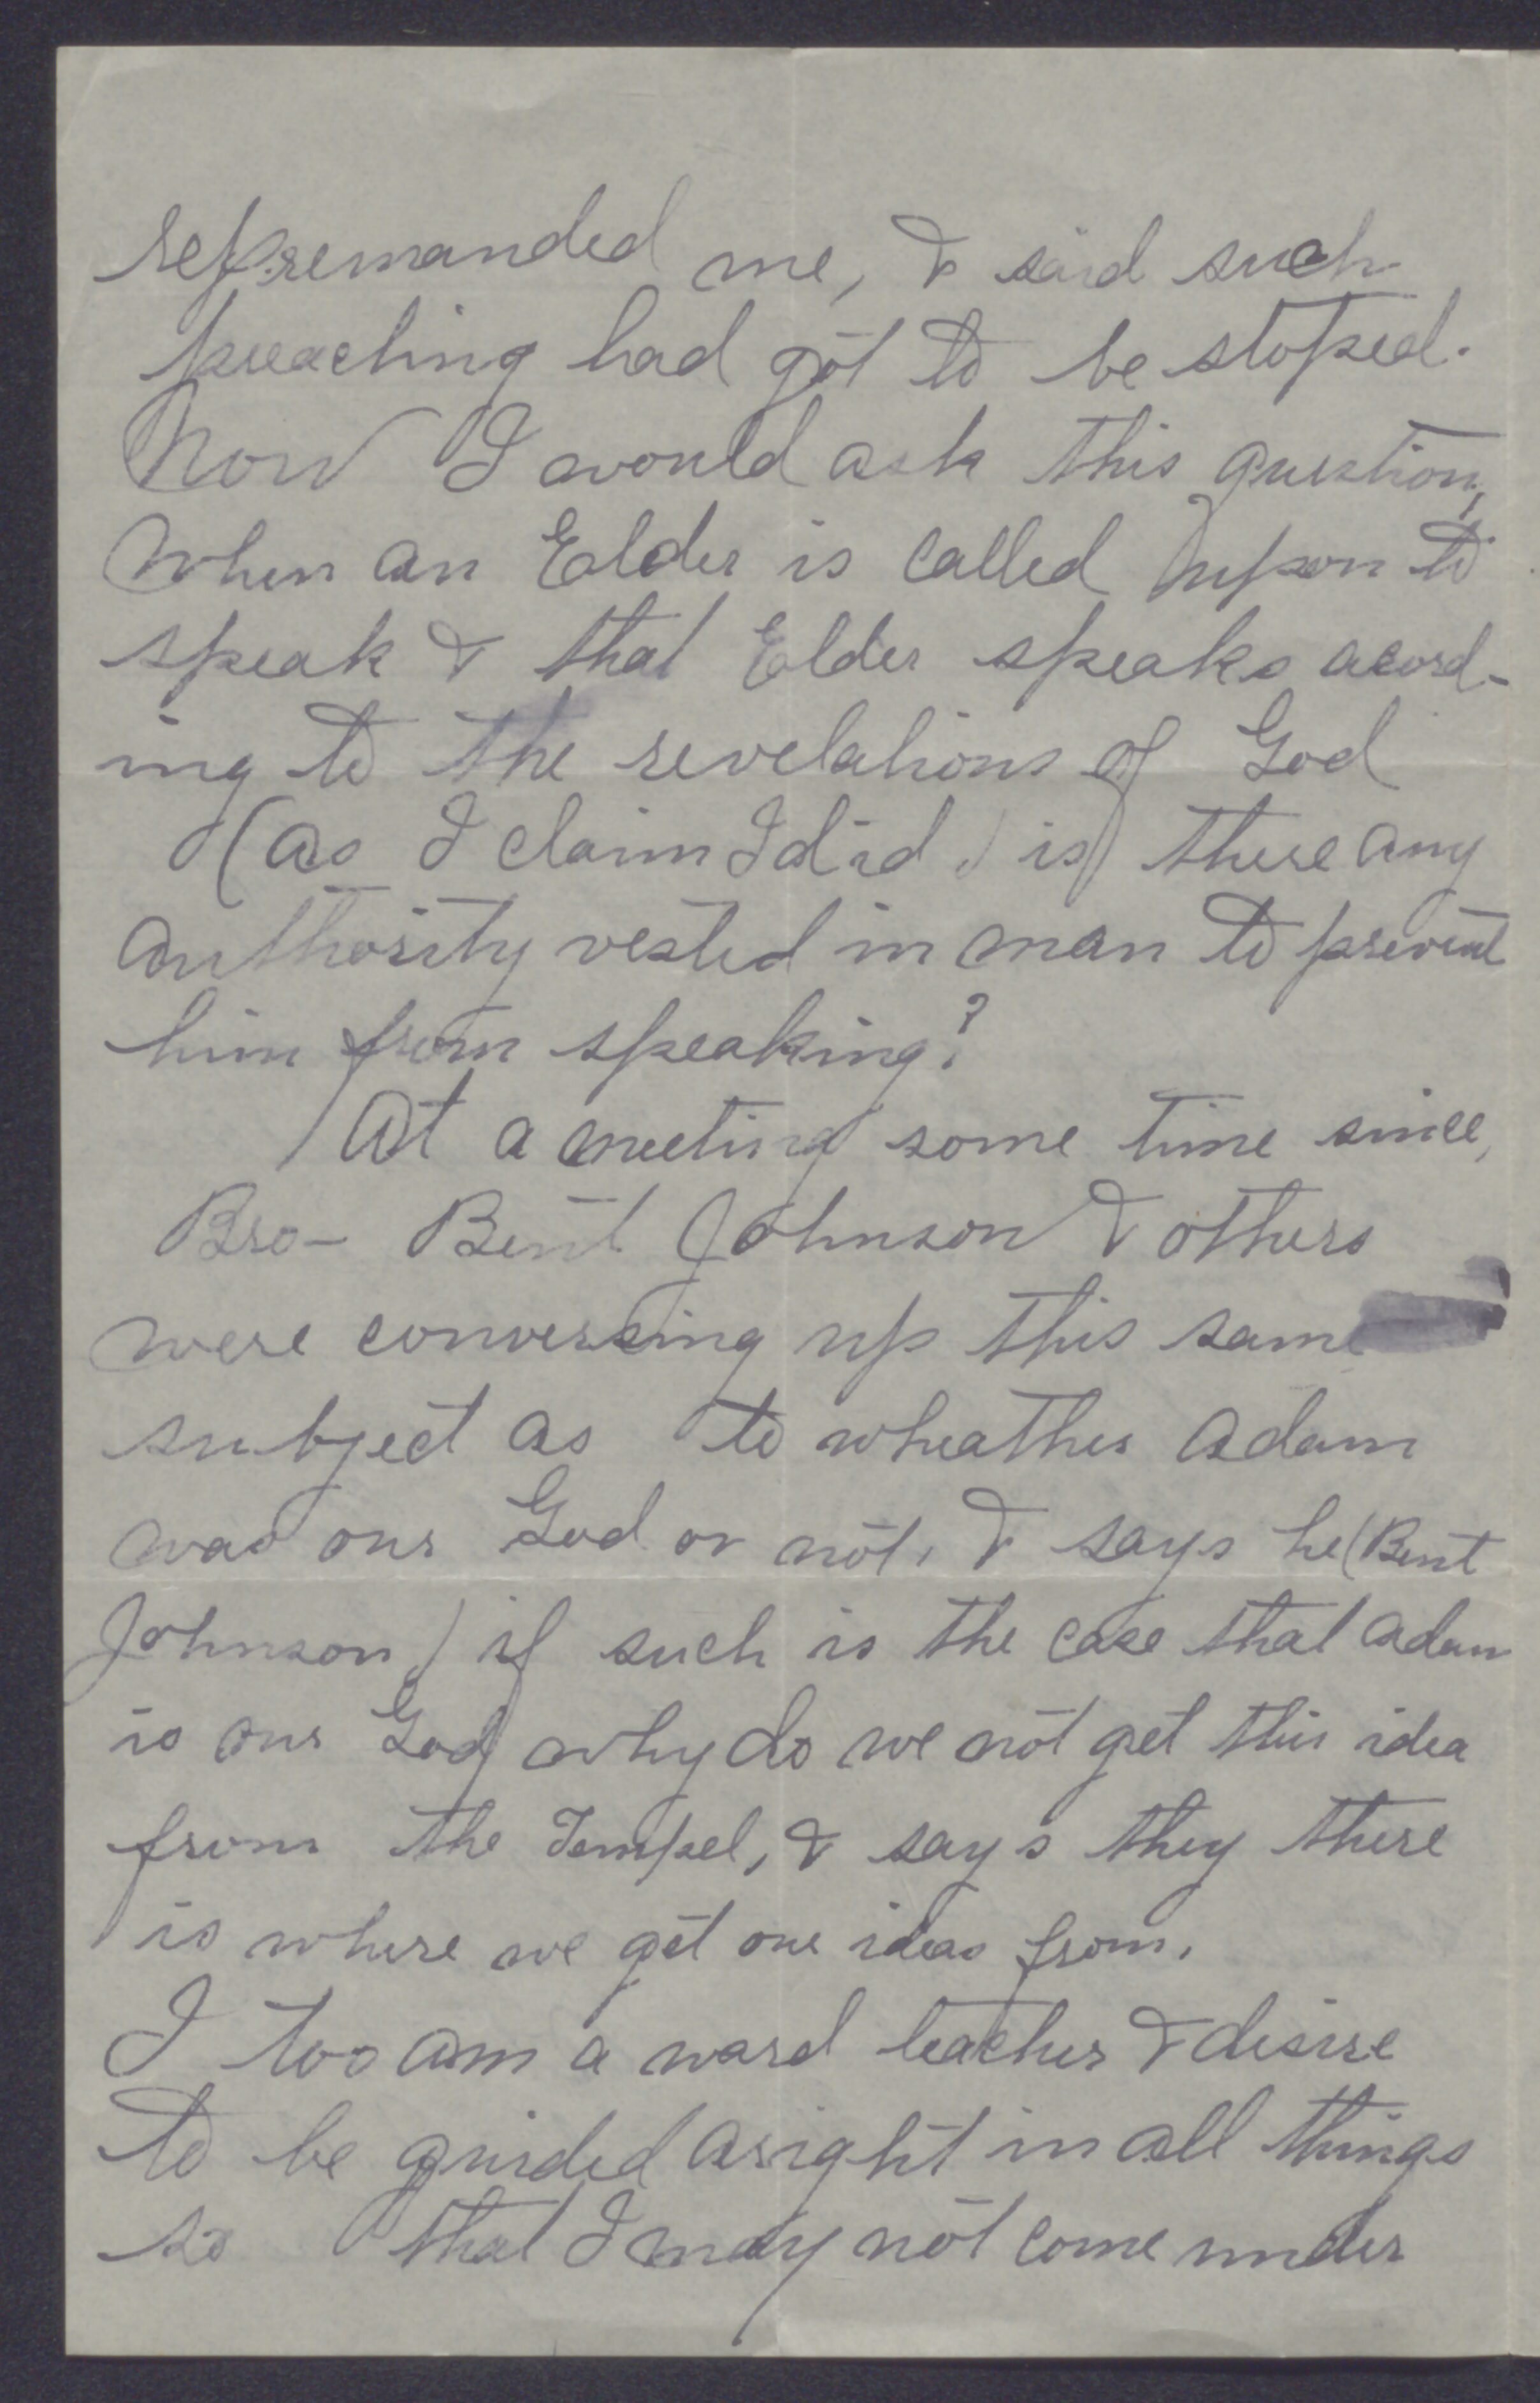 repremanded me, & said such
preaching had got to be stoped.
Now I would ask this question,
When an Elder is called upon to
speak & that Elder speaks acord-
ing to the revelations of God
(as I claim I did) is there any
authority vested in man to prevent
him from speaking?
At a meeting some time since,
Bro- Bent Johnson & others
were conversing up this same
subject as to wheather Adam
was our God or not, & says he (Bent
Johnson) if such is the case that Adam
is our God why do we not get this idea
from the Tempel, & says they there
is where we get our ideas from.
I too am a ward teacher & desire
to be guided aright in all things
so that I may not come under